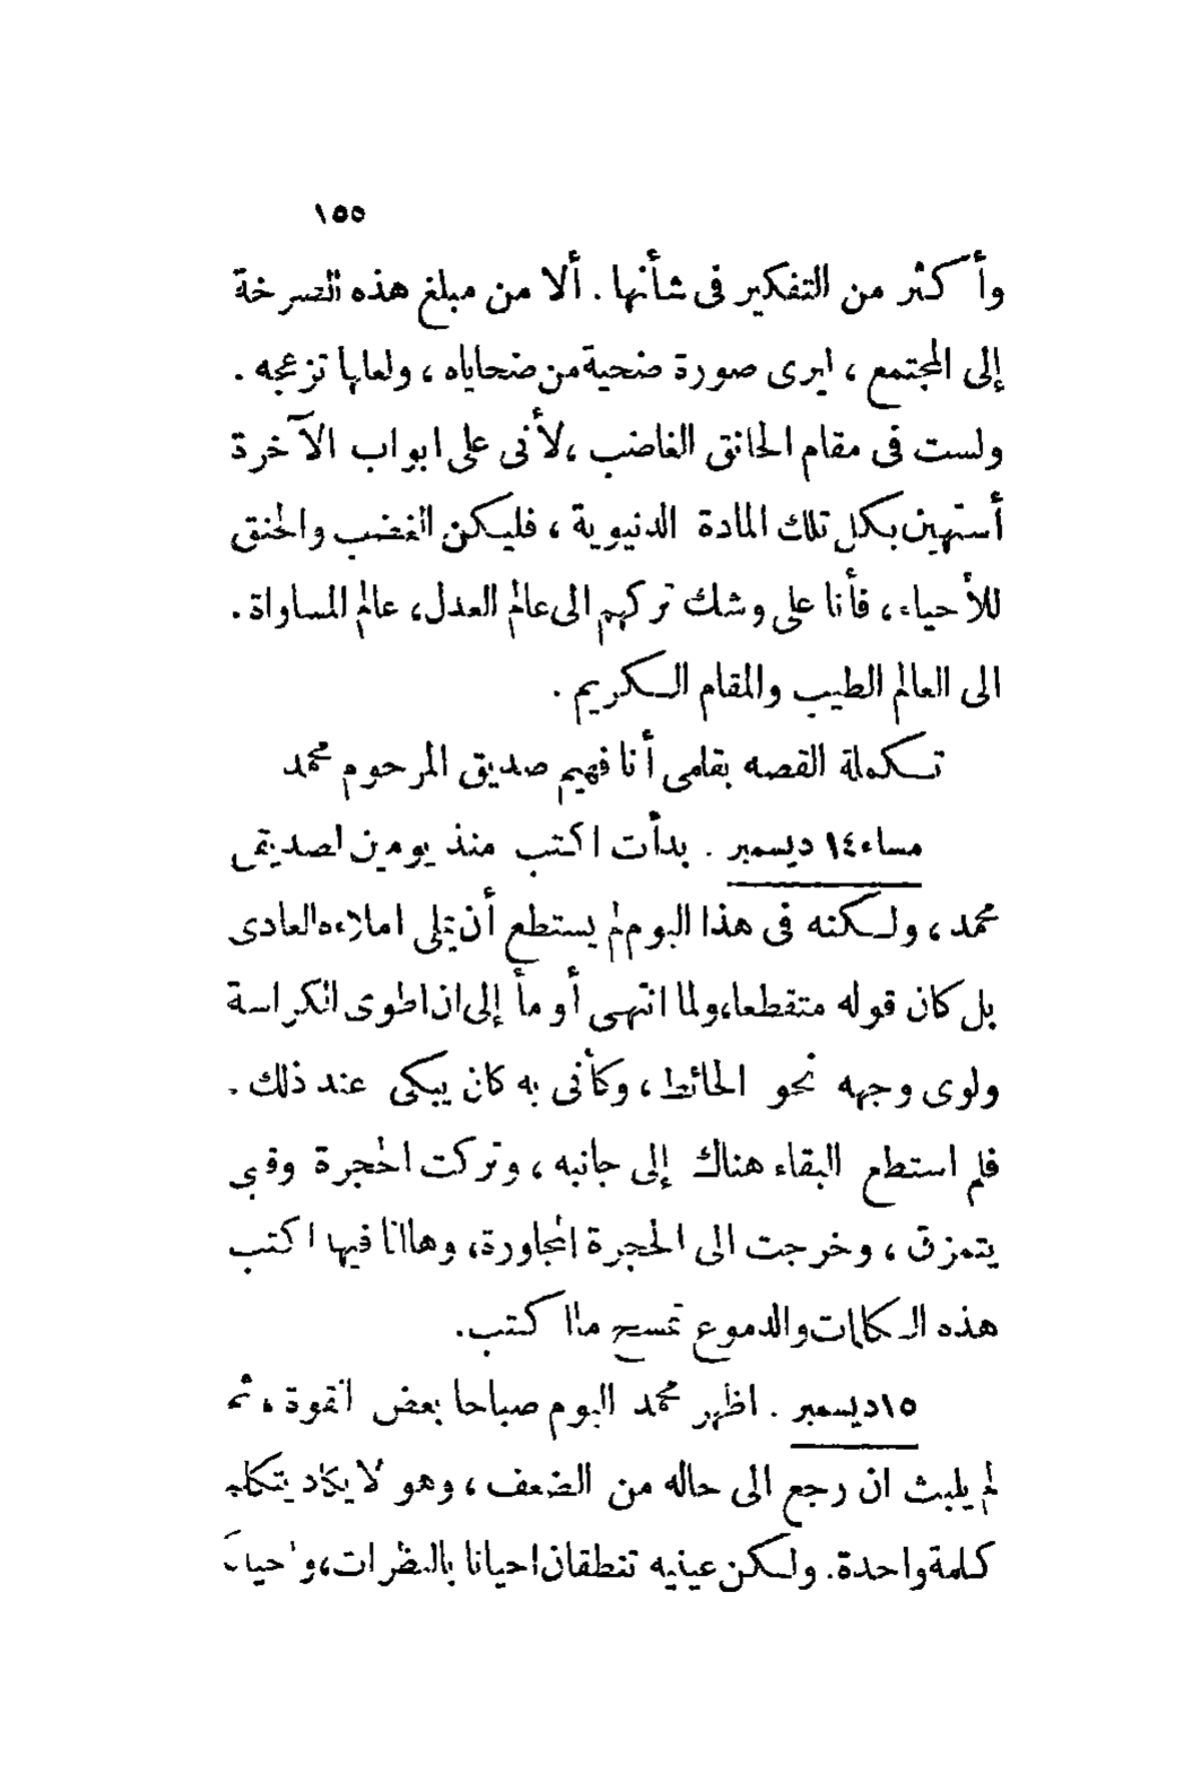 ١٥٥
وأكثر من التفكير فى شأنها . ألا من مبلغ هذه الصرخة
إلى المجتمع ، ليرى صورة ضحية من ضحاياه ، ولعلها تزعجه .
ولست فى مقام الحانق الغاضب ، لأنى على ابواب الآخرة
أستهين بكل تلك المادة الدنيوية ، فليكن الغضب والحنق
للأحياء ، فأنا على وشك تركهم الى عالم العدل ، عالم المساواة .
الى العالم الطيب والمقام الكريم .
تكملة القصه بقلمى أنا فهيم صديق المرحوم محمد
مساء ١٤ ديسمبر . بدأت اكتب منذ يومين لصديقى
محمد ، ولكنه فى هذا اليوم لم يستطع أن يملى املاءه العادى
بل كان قوله متقطعا ، ولما انتهى أومأ إلى ان اطوى الكراسة
ولوى وجهه نحو الحائط ، وكأنى به كان يبكى عند ذلك .
فلم استطع البقاء هناك إلى جانبه ، وتركت الحجرة وقلبى
يتمزق ، وخرجت الى الحجرة المجاورة ، وهاانا فيها اكتب
هذه الكلمات والدموع تمسح مااكتب .
١٥ ديسمبر . اظهر محمد اليوم صباحا بعض القوة ، ثم
لم يلبث ان رجع الى حاله من الضعف ، وهو لا يكاد يتكلم
كلمة واحدة . ولكن عينيه تنطقان احيانا بالنظرات ، واحيانا